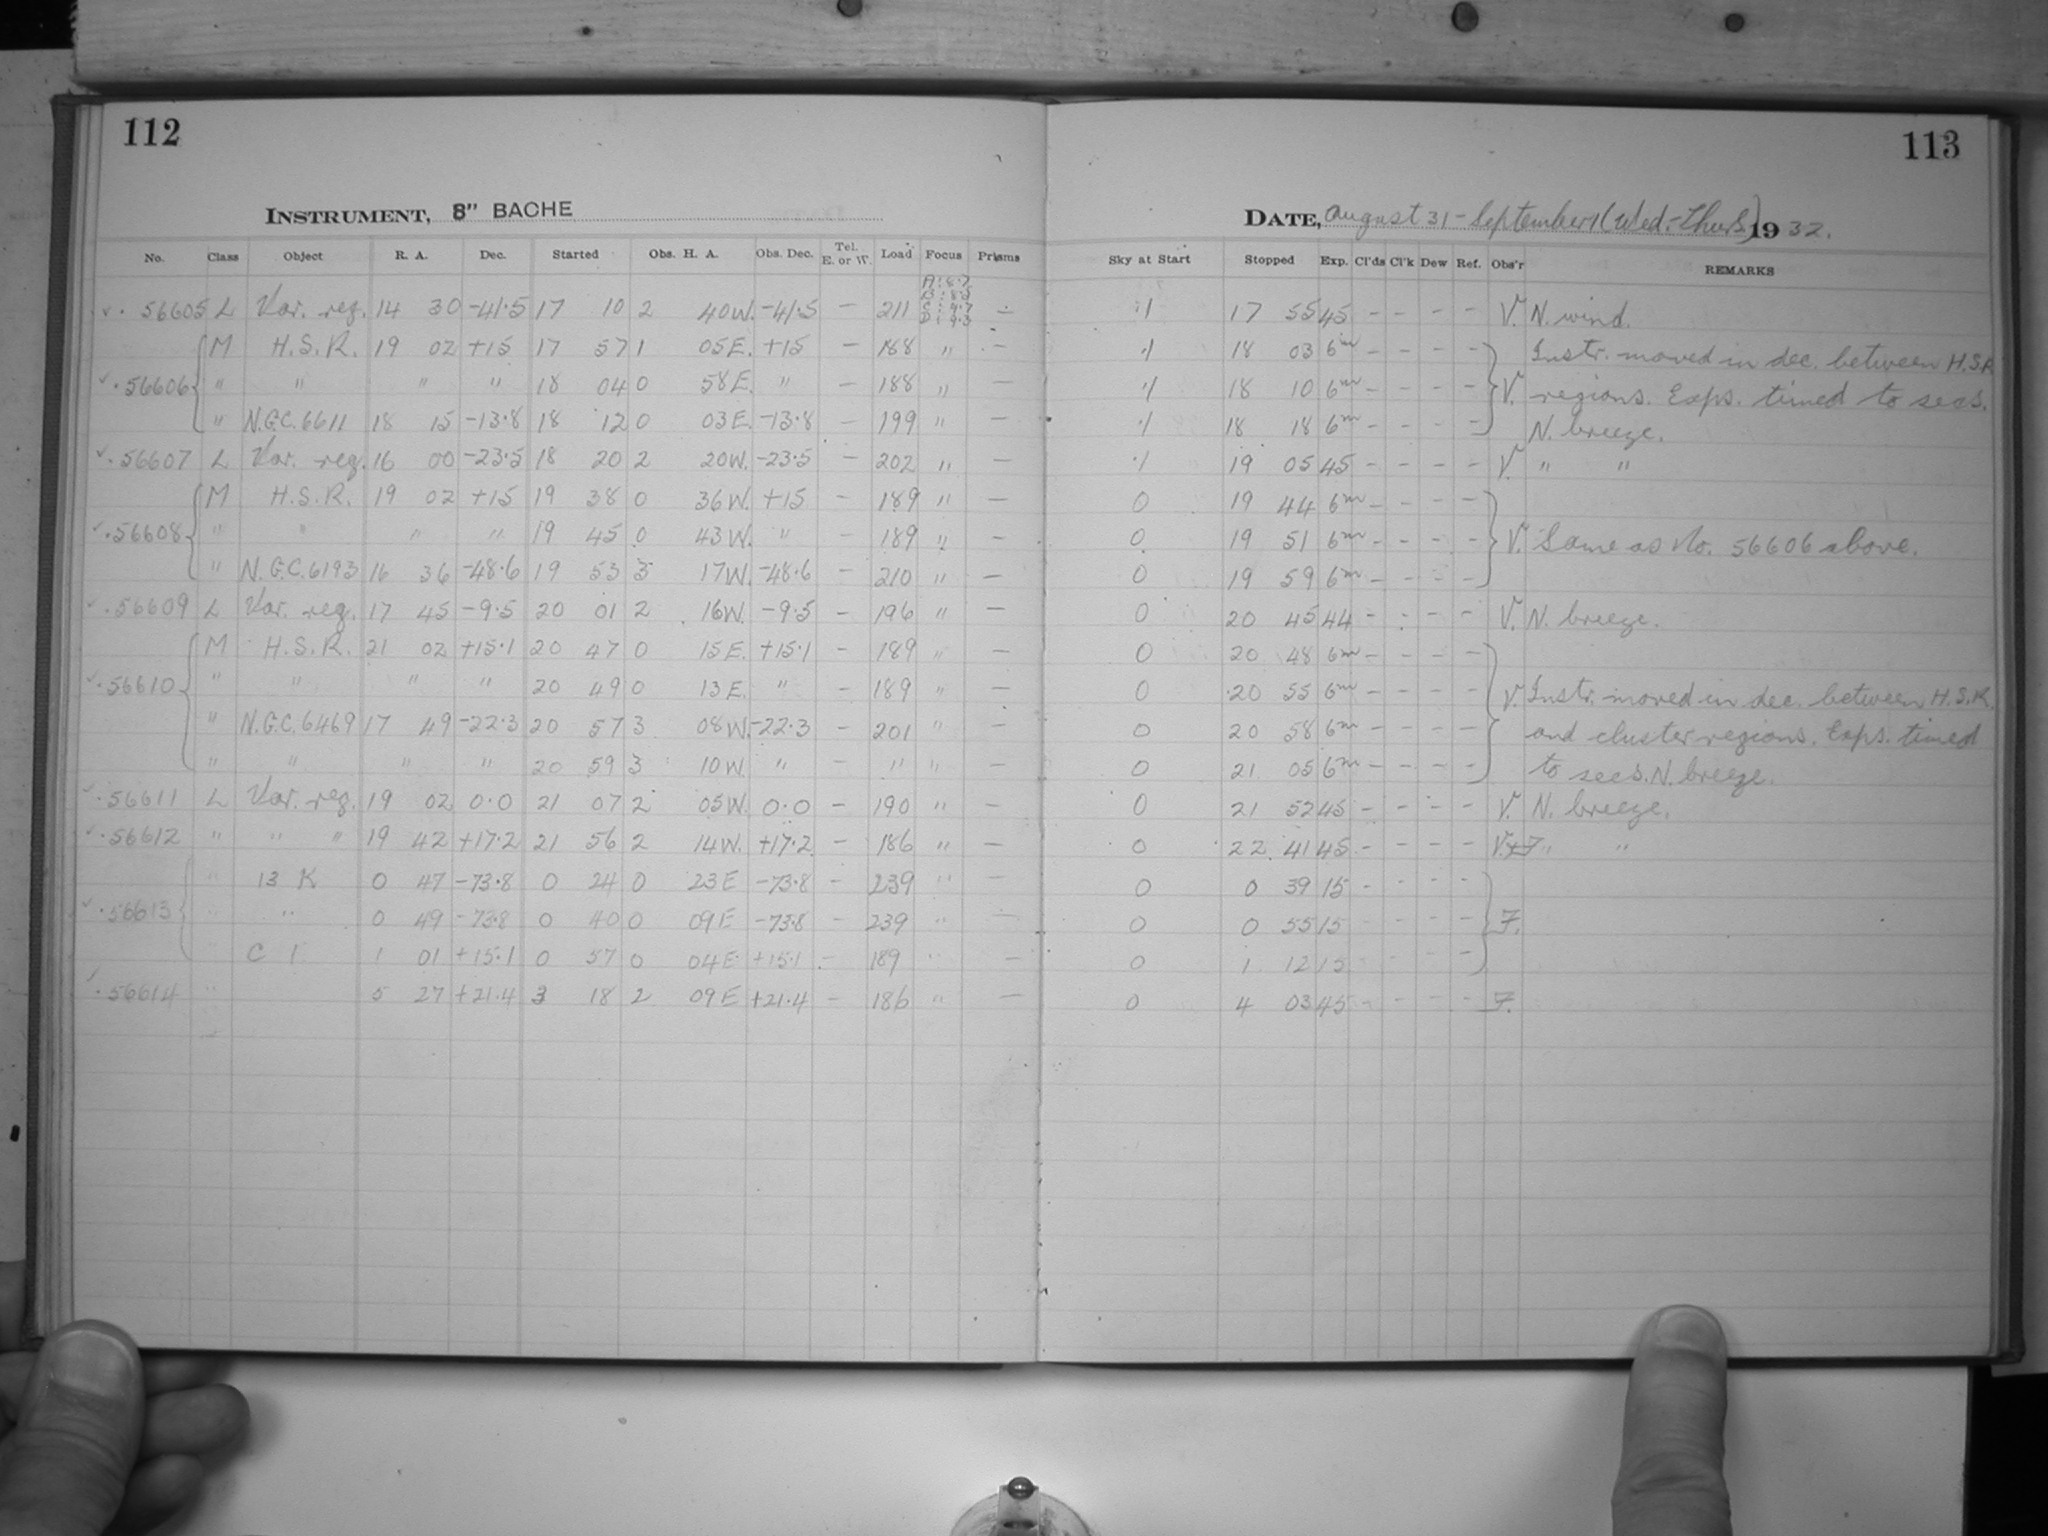 112
INSTRUMENT, 8" BACHE
No. Class Object R. A. Dec. Started Obs. H. A. Obs. Dec. Tel. E. or W. Load Focus Prisms
A: 8.7
B: 8.2
56605 L Var. reg. 14 30 -41.5 17 10 2 40W. -41.5 — 211 —
M H.S.R. 19 02 +15 17 57 1 05E. +15 — 188 " —
56606 " " " " 18 04 0 58E. " — 188 " —
" N.G.C. 6611 18 15 -13.8 18 12 0 03E. -13.8 — 199 " —
56607 L Var. reg. 16 00 -23.5 18 20 2 20W. -23.5 — 202 " —
M H.S.R. 19 02 +15 19 38 0 36W. +15 — 189 " —
56608 " " " " 19 45 0 43W. " — 189 " —
" N.G.C. 6193 16 36 -48.6 19 53 3 17W. -48.6 — 210 " —
56609 L Var. reg. 17 45 -9.5 20 01 2 16W. -9.5 — 196 " —
M H.S.R. 21 02 +15.1 20 47 0 15E. +15.1 — 189 " —
56610 " " " " 20 49 0 13E. " — 189 " —
" N.G.C. 6469 17 49 -22.3 20 57 3 08W. -22.3 — 201 " —
" " " " 20 59 3 10W. " — " " —
56611 L Var. reg. 19 02 0.0 21 07 2 05W. 0.0 — 190 " —
56612 " " " 19 42 +17.2 21 56 2 14W. +17.2 — 186 " —
" 13 K 0 47 -73.8 0 24 0 23E -73.8 - 239 " —
56613 " " 0 49 -73.8 0 40 0 09E -73.8 - 239 " —
" C 1 1 01 +15.1 0 57 0 04E +15.1 - 189 " —
56614 " 5 27 +21.4 3 18 2 09E +21.4 - 186 " —
113
DATE, August 31 - September 1 (Wed.-Thurs.) 1932.
Sky at Start Stopped Exp. Cl'ds Cl'k Dew Ref. Obs'r REMARKS
.1 17 55 45 - - - - V. N. wind.
.1 18 03 6m - - - - Instr. moved in dec. between H.S.R.
.1 18 10 6m - - - - V. regions. Exps. timed to secs.
.1 18 18 6m - - - - N. breeze.
.1 19 05 45 - - - - V. " "
0 19 44 6m - - - -
0 19 51 6m - - - - V. Same as No. 56606 above.
0 19 59 6m - - - -
0 20 45 44 - - - - V. N. breeze.
0 20 48 6m - - - -
0 20 55 6m - - - - V. Instr. moved in dec. between H.S.R.
0 20 58 6m - - - - and cluster regions. Exps. timed
0 21 05 6m - - - - to secs. N. breeze.
0 21 52 45 - - - - V. N. breeze.
0 22 41 45 - - - - V. " "
0 0 39 15 - - - -
0 0 55 15 - - - - F.
0 1 12 15 - - - -
0 4 03 45 - - - - F.